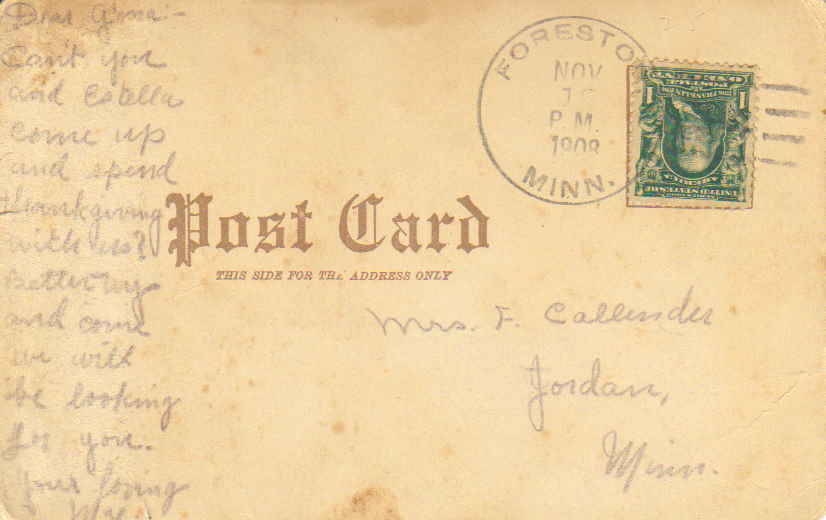 Dear Anna -
Can't you
and Estella
come up
and spend
thankgiving
with us?
Better try
and come
we will
be looking
for you.
Your loving
FORESTO
NOV
P.M.
1908
MINN.
1
1
POSTAGE
ONE CENT
AMERICA
UNITED STATES OF
Post Card
THIS SIDE FOR THE ADDRESS ONLY
Mrs. F. Callender
Jordan,
Minn.